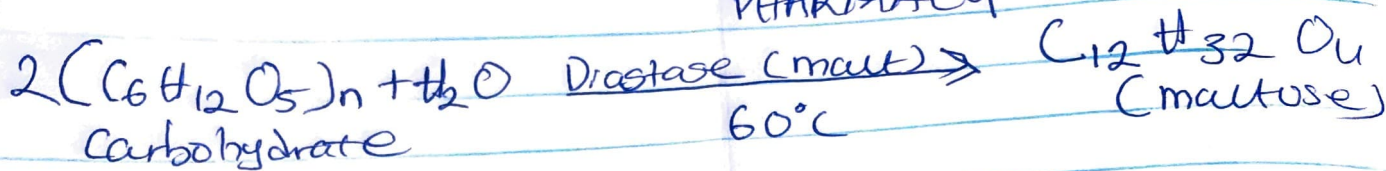 2(C6H12O5)n + H2O Diastase (malt) → C12H32O4
Carbohydrate 60°C (maltose)